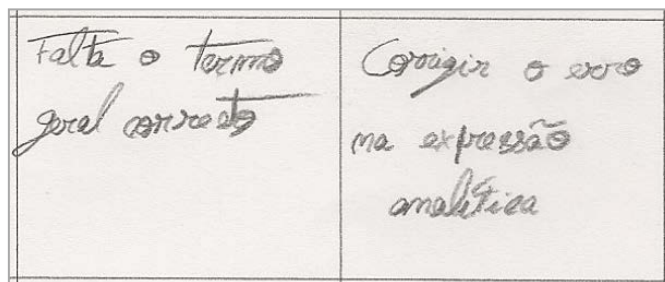 Falta o termo
geral correto
Corrigir o erro
na expressão
analítica